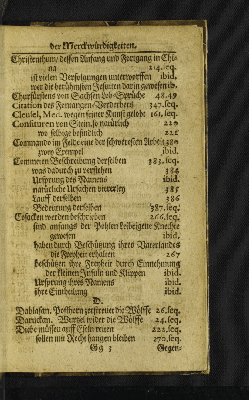 der Merckwürdigkeiten.
Christenthum/ dessen Anfang und Fortgang in Chi-
na 214. seq.
ist vielen Verfolgungen unterworffen ibid.
wer die berühmsten Jesuiten darin gewesen ib.
Churfürstens von Sachsen Leb-Sprüche 48. 49
Citation des Fernangen-Verderbers 347. seq.
Cleusel, Med. wegen seiner Kunst gelobt 161. seq.
Confituren von Stein/so natürlich 220
wo selbige befindlich 221
Commando im Felde eine der schweresten Arbeit
zwey Exempel ibid.
Commeten Beschreibung derselben 383. seq.
was dadurch zu verstehen 384
Ursprung des Namens ibid.
natürliche Ursachen viererley 385
Lauff derselben 386
Bedeutung derselben 387. seq.
Cosacken werden beschrieben 266. seq.
sind anfangs der Pohlen leibeigene Knechte
gewesen ibid.
haben durch Beschützung ihres Vaterlandes
die Freyheit erhalten 267
beschützen ihre Freyheit durch Einnehmung
der kleinen Insuln und Klippen ibid.
Ursprung ihres Namens ibid.
ihre Eintheilung ibid.
D.
wider die Wölffe 34. seq.
Diebe müssen auff Eseln reuten 222. seq.
sollen mit Recht hangen bleiben 270. seq.
Gg 3 Gegen-